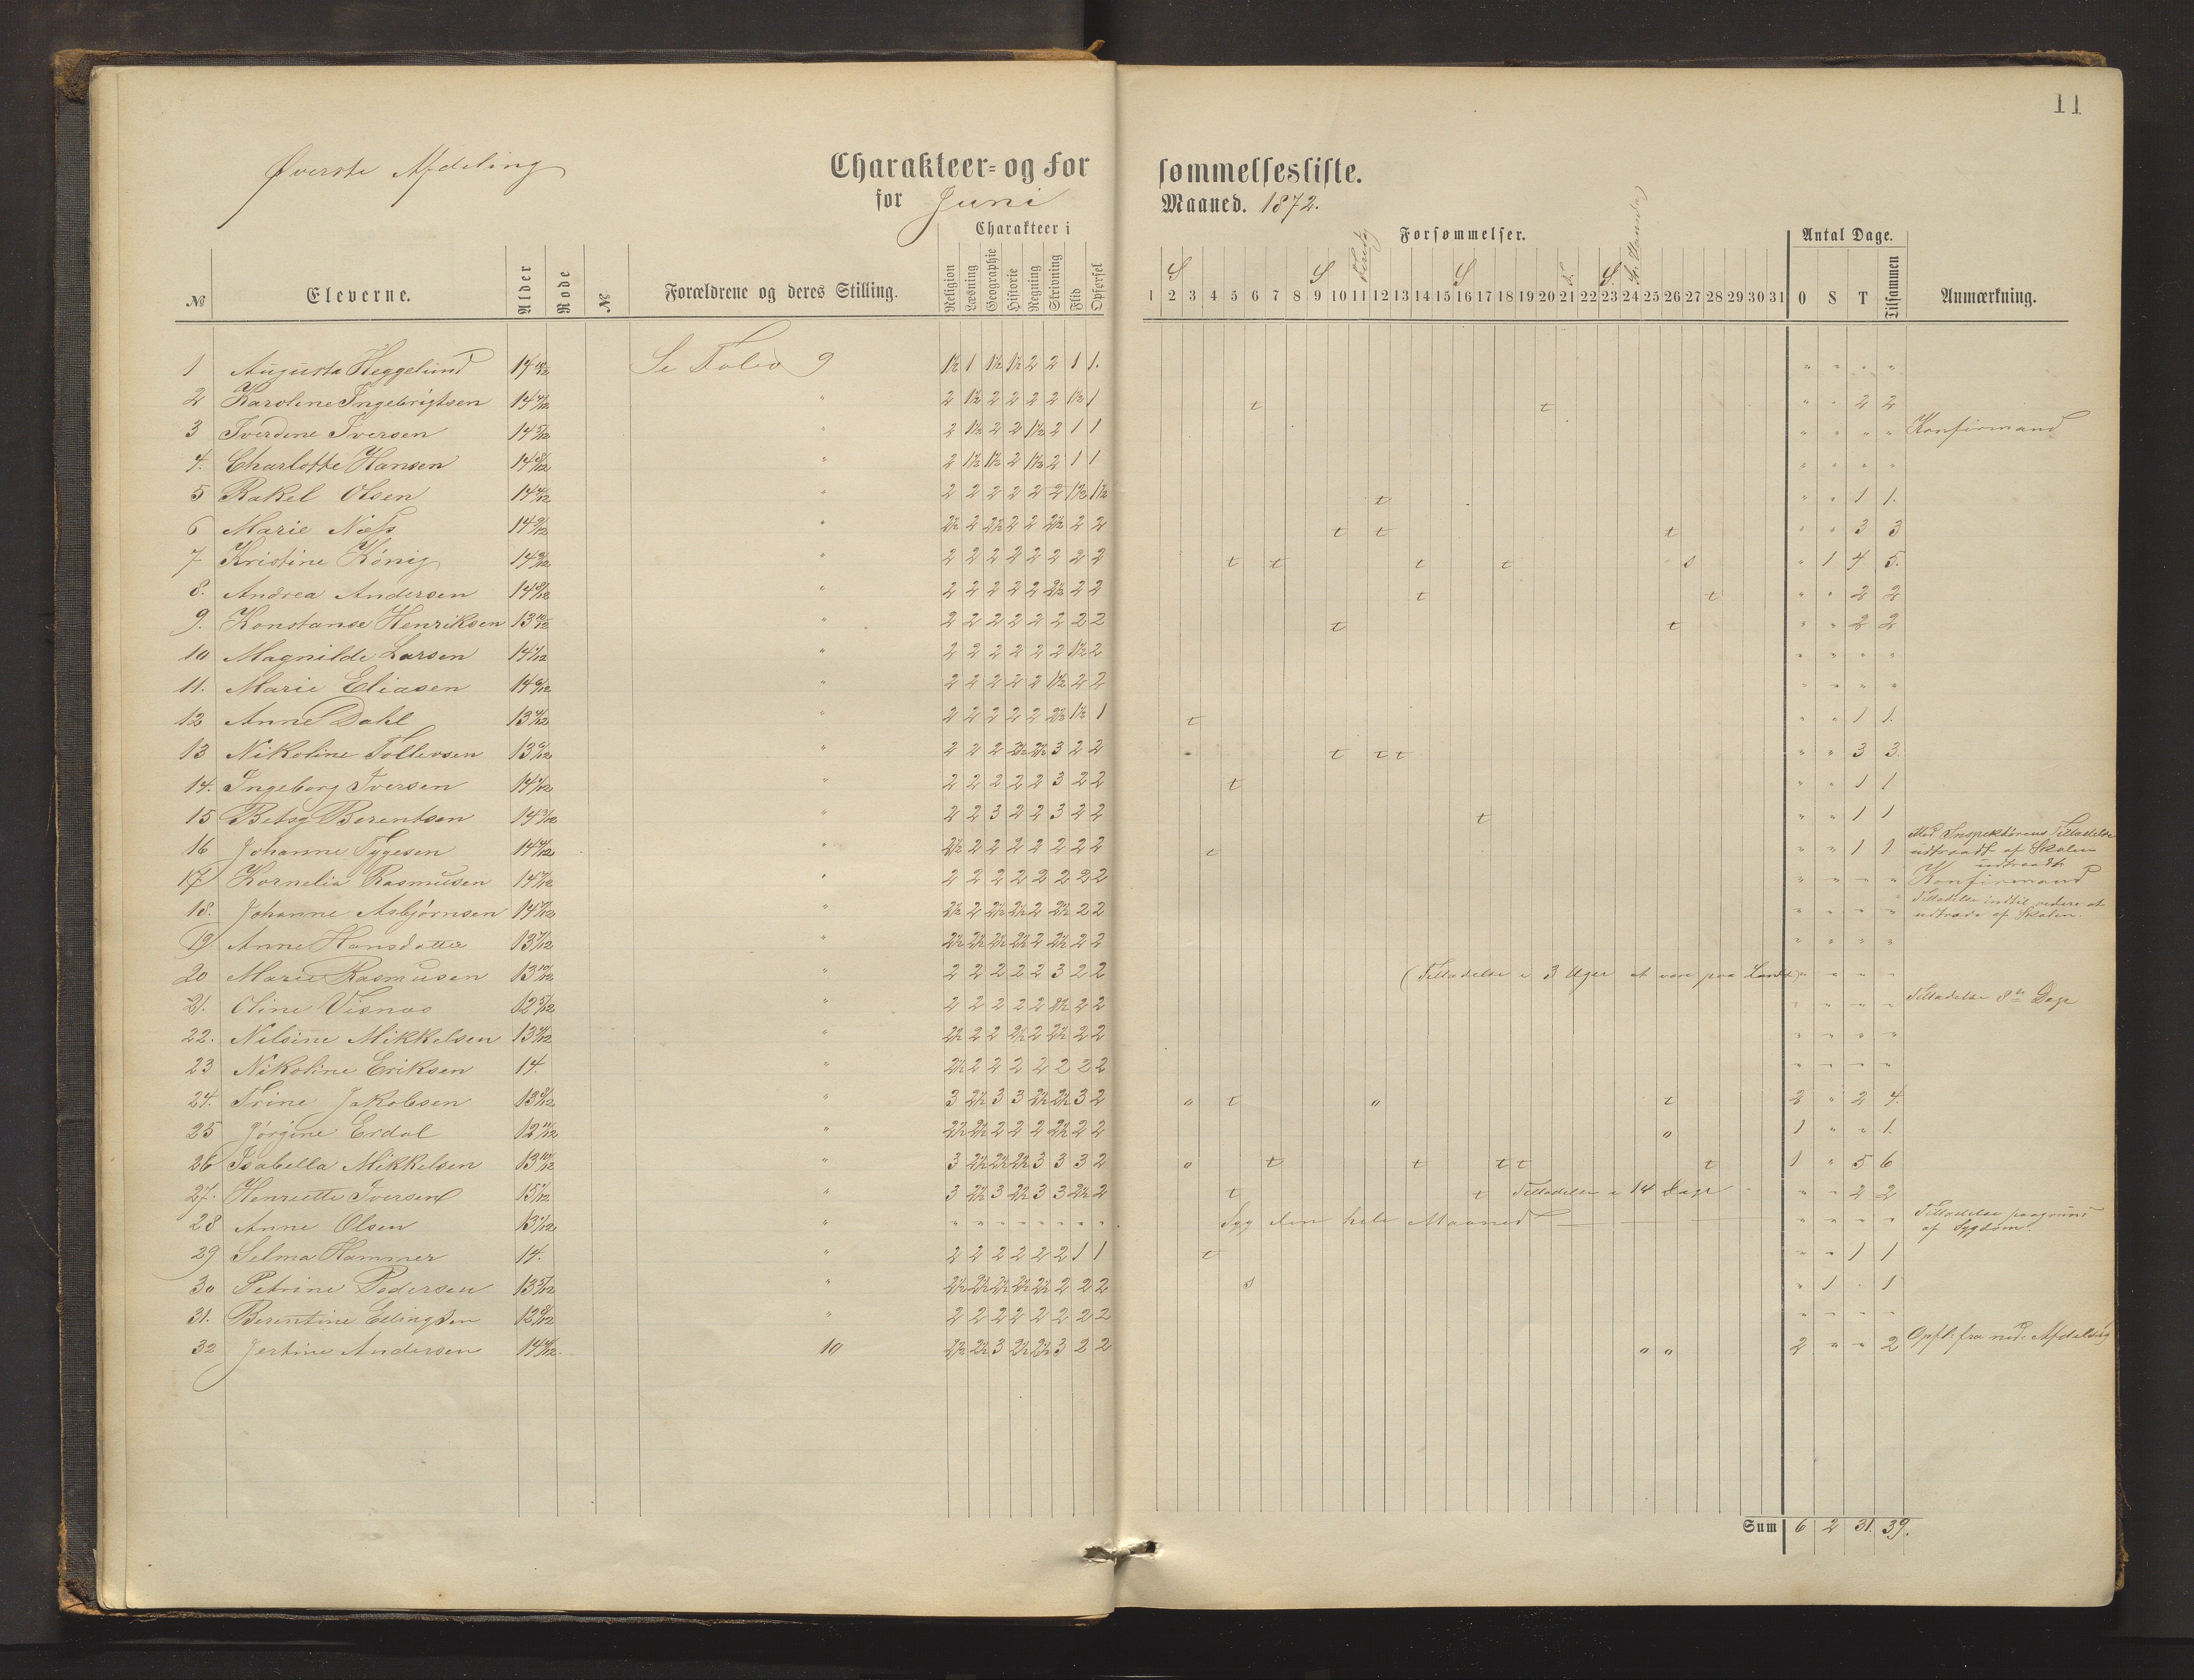 11
Øverste Afdeling
Charakteer- og Forsømmelsesliste.
for Juni Maaned. 1872.
Charakteer i
Forsømmelser.
Antal Dage.
№ Eleverne. Alder Rode № Forældrene og deres Stilling. Religion Læsning Geographie Historie Regning Skrivning Flid Opførsel 1 2 3 4 5 6 7 8 9 10 11 12 13 14 15 16 17 18 19 20 21 22 23 24 25 26 27 28 29 30 31 O S T Tilsammen Anmærkning.
S S S S.
1 Augusta Heggelund Se Folio 9 1½ 1 1½ 1½ 2 2 1 1. " " " "
2 Karoline Ingebrigtsen " 2 1½ 2 2 2 2 1½ 1 t t " " 2 2
3 Iverdine Iversen 14 5/12 " 2 1½ 2 2 1½ 2 1 1 " " " " Konfirmand
4. Charlotte Hansen 14 8/12 " 2 1½ 1½ 2 1½ 2 1 1 " " " "
5 Rakel Olsen " 2 2 2 2 2 2 1½ 1½ t " " 1 1.
6 Marie Næss 14 9/12 " 2½ 2 2½ 2 2 2½ 2 2 t t t " " 3 3
7 Kristine König " 2 2 2 2 2 2 2 2 t t t t s " 1 4 5.
8. Andrea Andersen " 2 2 2 2 2 2½ 2 2 t t " " 2 2
9. Konstanse Henriksen 13 10/12 " 2 2 2 2 2 2 2 2 t t " " 2 2
10 Magnilde Larsen " 2 2 2 2 2 2 1½ 2 " " " "
11. Marie Eliasen 14 6/12 " 2 2 2 2 2 1½ 2 2 " " " "
12 Anne Dahl " 2 2 2 2 2 2½ 1½ 1 t " " 1 1.
13 Nikoline Tollevsen 13 6/12 " 2 2 2 2½ 2½ 3 2 2 t t t " " 3 3.
14. Ingeborg Iversen " 2 2 2 2 2 3 2 2 t " " 1 1
15 Betsy Berentsen 14 3/12 " 2 2 3 2 2 3 2 2 t " " 1 1
16 Johanne Tygesen " 2½ 2 2 2 2 2 2 2 t " " 1 1 Med Inspektørens Tilladelse
udtraadt af Skolen
udtraadt
17 Kornelia Rasmusen " 2 2 2 2 2 2 2 2 " " " " Konfirmand
18. Johanne Asbjørnsen " 2½ 2 2½ 2½ 2 2½ 2 2 " " " " Tilladelse indtil videre at
udtræde af Skolen.
19. Anne Hansdatter 13 7/12 " 2½ 2½ 2½ 2½ 2 2½ 2 2 " " " "
20 Marie Rasmusen 13 10/12 " 2 2 2 2 2 3 2 2 (Tilladelse i 3 Uger at være paa Landet) " " " "
21. Oline Visnæs 12 5/12 " 2 2 2 2 2 2½ 2 2 " " " " Tilladelse 8te Dage
22. Nilsine Mikkelsen " 2½ 2 2 2½ 2 2½ 2 2 " " " "
23 Nikoline Eriksen 14. " 2½ 2 2 2 2 2 2 2 " " " "
24. Trine Jakobsen 13 8/12 " 3 2½ 3 3 2½ 2½ 3 2 o t o t 2 " 2 4.
25 Jørgine Erdal 12 11/12 " 2½ 2½ 2 2 2 2½ 2 2 o 1 " " 1.
26 Isabella Mikkelsen 13 10/12 " 3 2½ 2½ 2½ 3 3 3 2 o t t t t t 1 " 5 6
27. Henriette Iversen " 3 2½ 3 2½ 3 3 2½ 2 t t Tilladelse i 14 Dage " " 2 2
28 Anne Olsen " " " " " " " " " Syg den hele Maaned " " " " Tilladelse paagrund
af Sygdom.
29 Selma Hammer 14. " 2 2 2 2 2 2 1 1 t " " 1 1
30 Petrine Pedersen 13 5/12 " 2½ 2½ 2½ 2½ 2½ 2 2 2 s " 1 . 1
31. Berentine Ellingsen 12 8/12 " 2 2 2 2 2 2 2 2 " " " "
32 Jertine Andersen 10 2½ 2½ 3 2½ 2½ 3 2 2 o o 2 " " 2 Opfl: fra ned: Afdeling
Sum 6 2 31. 39.